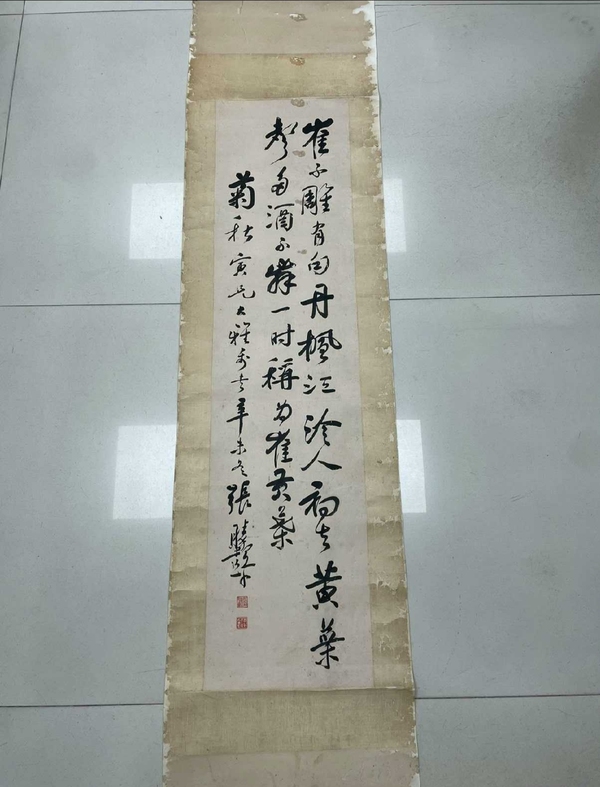 崔不雕有句丹楓江冷人初去黄葉
聲多酒不辭一时稱为崔黄葉
菊秋寅兄大雅 辛未冬張